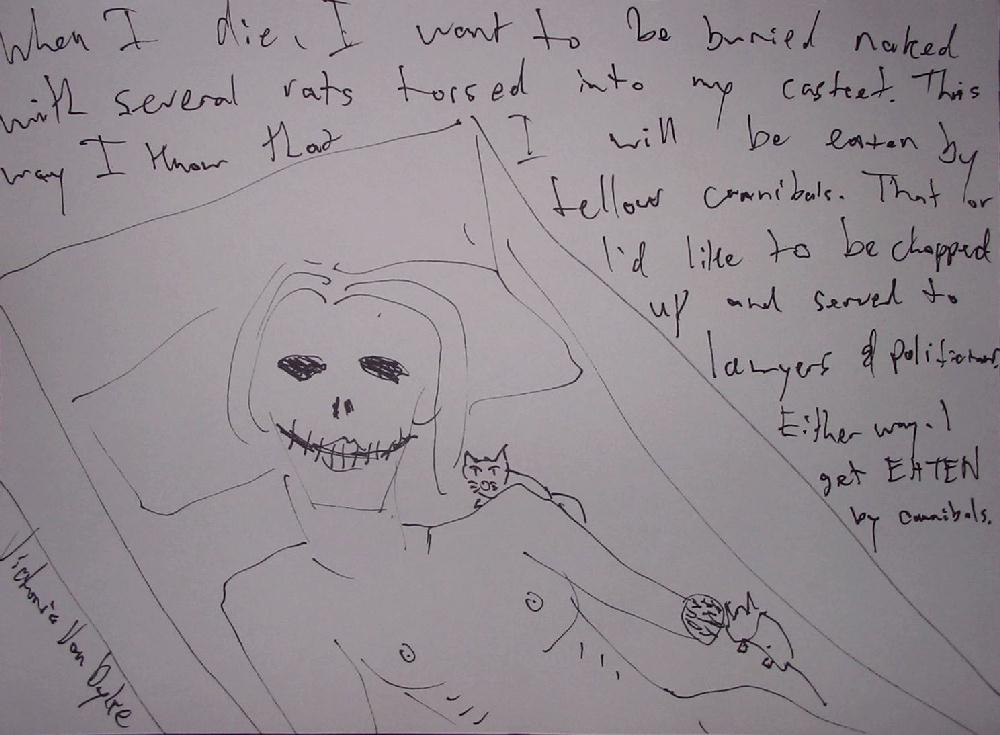 When I die, I want to be buried naked
with several rats tossed into my casket. This
way I know that I will be eaten by
fellow cannibals. That or
I'd like to be chopped
up and served to
lawyers & politicians.
Either way. I
get EATEN
by cannibals.
Victoria Van Dyke